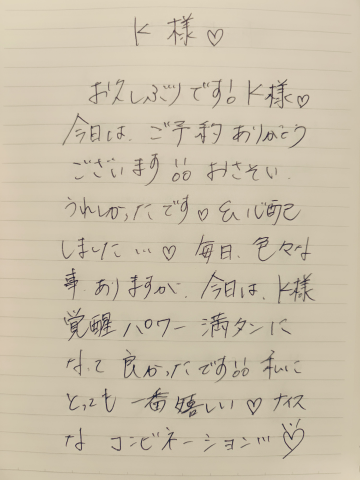 K様♡
お久しぶりです! K様♡
今日は、ご予約ありがとう
ございます!! おさそい、
うれしかったです♡ & 心配
しました…♡ 毎日、色々な
事、ありますが、今日は、K様
覚醒パワー満タンに
なって良かったです!! 私に
とっても一番嬉しい♡ ナイス
なコンビネーション!!!♡